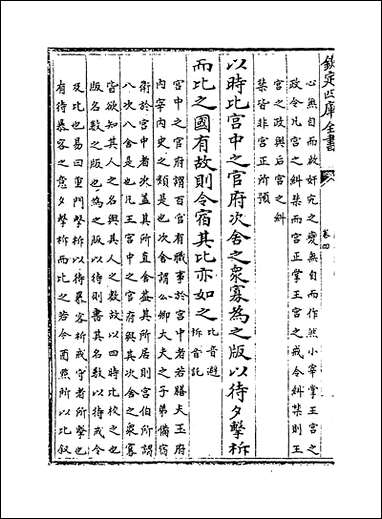 欽定四庫全書
卷四
心無自而啟奸宄之變無自而作然小宰掌王宮之
政令凡宮之糾禁而宮正掌王宮之戒令糾禁則王
宮之政與后宮之糾
禁皆非宮正所預
以時比宮中之官府次舍之衆寡為之版以待夕擊柝
而比之國有故則令宿其比亦如之比音避
柝音託
宮中之官府謂百官有職事於宮中者若膳夫玉府
內宰內史之類是也次舍謂公卿大夫之子弟備宿
衛於宮中者次蓋其所直舍蓋其所居則宮伯所謂
八次八舍是也凡王宮中之官府與其次舍之衆寡
皆欲知其人之名與其人之數故以四時比校之也
版名數之版也為之版以待則書其名數以待戒令
及比也易曰重門擊柝以待暴客柝戒守者所擊也
有待暴客之意夕擊柝而比之若今酉點所以比敘